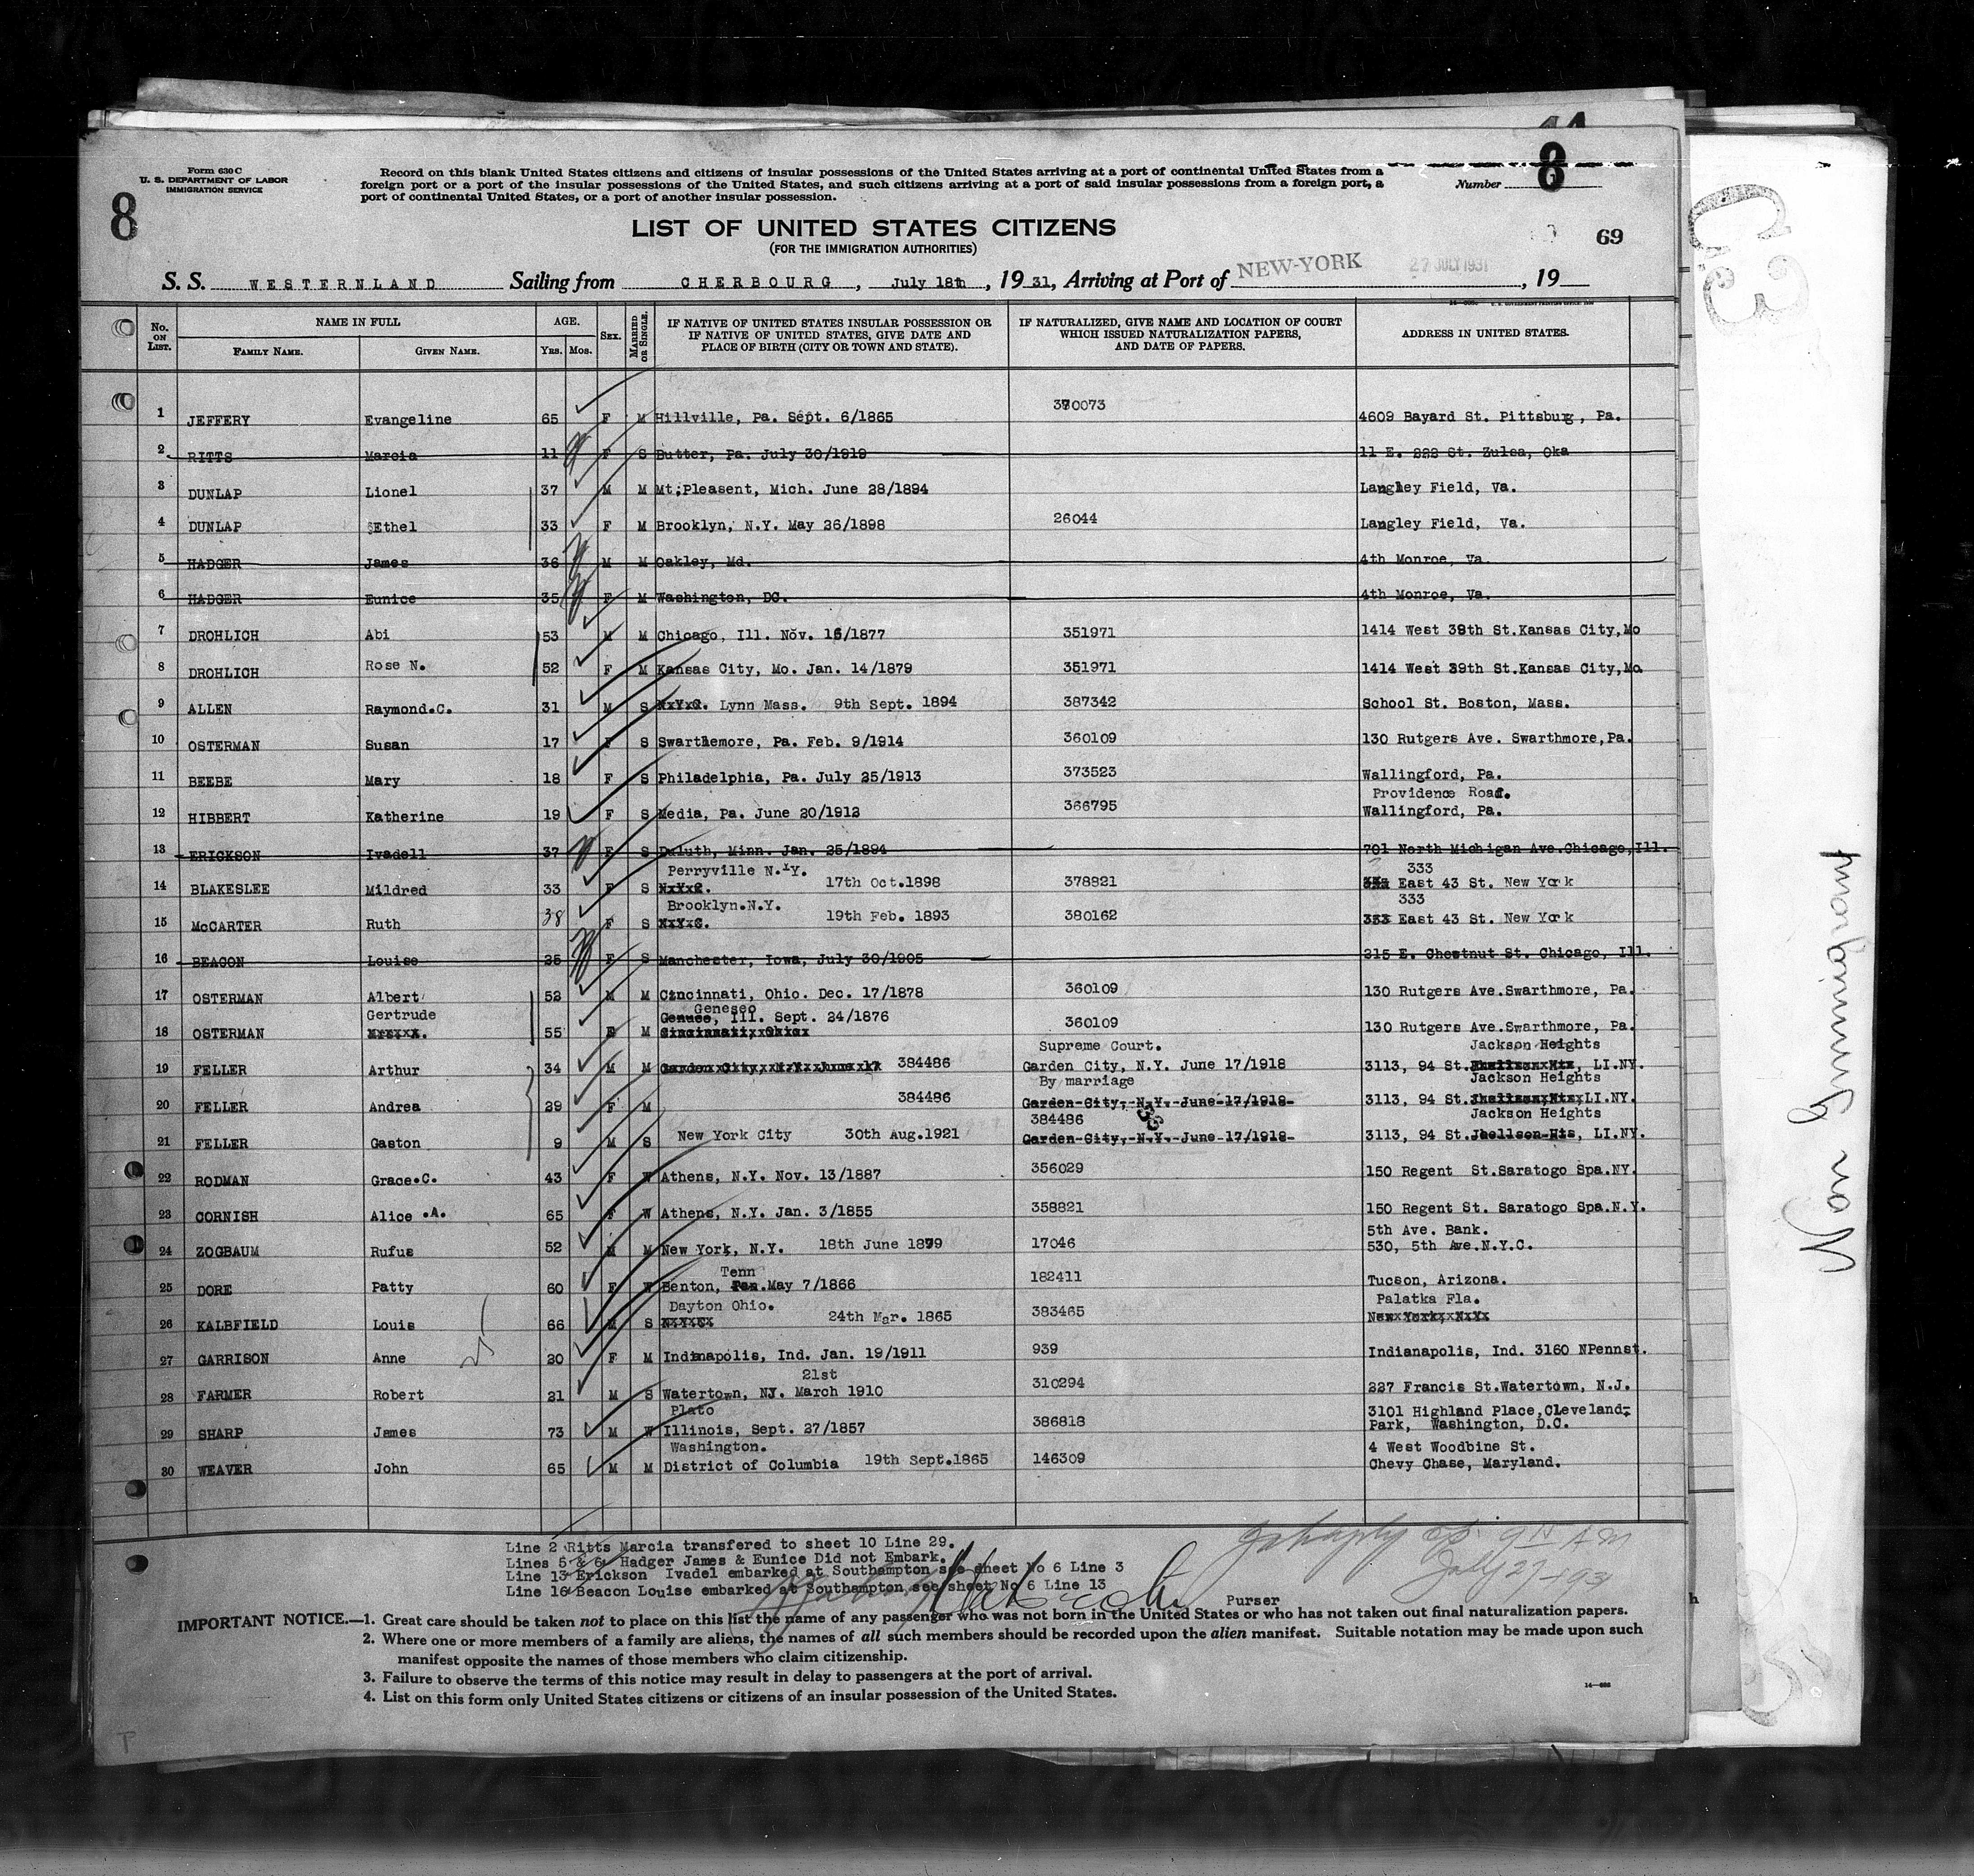 Form 630 C
U. S. DEPARTMENT OF LABOR
IMMIGRATION SERVICE
8
Record on this blank United States citizens and citizens of insular possessions of the United States arriving at a port of continental United States from a
foreign port or a port of the insular possessions of the United States, and such citizens arriving at a port of said insular possessions from a foreign port, a
port of continental United States, or a port of another insular possession.
Number 8
LIST OF UNITED STATES CITIZENS
(FOR THE IMMIGRATION AUTHORITIES)
69
S. S. WESTERNLAND Sailing from CHERBOURG, July 18th, 1931, Arriving at Port of NEW-YORK 27 JULY 1931, 19
No. ON LIST. NAME IN FULL AGE. SEX. MARRIED OR SINGLE. IF NATIVE OF UNITED STATES INSULAR POSSESSION OR IF NATIVE OF UNITED STATES, GIVE DATE AND PLACE OF BIRTH (CITY OR TOWN AND STATE). IF NATURALIZED, GIVE NAME AND LOCATION OF COURT WHICH ISSUED NATURALIZATION PAPERS, AND DATE OF PAPERS. ADDRESS IN UNITED STATES.
FAMILY NAME. GIVEN NAME. YRS. MOS.
1 JEFFERY Evangeline 65 F M Hillville, Pa. Sept. 6/1865 370073 4609 Bayard St. Pittsburg, Pa.
2 RITTS Marcia 11 F S Butter, Pa. July 30/1919 11 E. 222 St. Zulsa, Oka
3 DUNLAP Lionel 37 M M Mt;Pleasent, Mich. June 28/1894 Langley Field, Va.
4 DUNLAP Ethel 33 F M Brooklyn, N.Y. May 26/1898 26044 Langley Field, Va.
5 HADGER James 36 M M Oakley, Md. 4th Monroe, Va.
6 HADGER Eunice 35 F M Washington, DC. 4th Monroe, Va.
7 DROHLICH Abi 53 M M Chicago, Ill. Nov. 16/1877 351971 1414 West 39th St.Kansas City,Mo
8 DROHLICH Rose N. 52 F M Kansas City, Mo. Jan. 14/1879 351971 1414 West 39th St.Kansas City,Mo.
9 ALLEN Raymond.C. 31 M S Lynn Mass. 9th Sept. 1894 387342 School St. Boston, Mass.
10 OSTERMAN Susan 17 F S Swarthemore, Pa. Feb. 9/1914 360109 130 Rutgers Ave. Swarthmore,Pa.
11 BEEBE Mary 18 F S Philadelphia, Pa. July 25/1913 373523 Wallingford, Pa.
Providence Road.
12 HIBBERT Katherine 19 F S Media, Pa. June 20/1912 366795 Wallingford, Pa.
13 ERICKSON Ivadell 37 F S Duluth, Minn. Jan. 25/1894 701 North Michigan Ave.Chicago,Ill.
Perryville N.Y. 333
14 BLAKESLEE Mildred 33 F S N.Y.C. 17th Oct.1898 378821 East 43 St. New York
Brooklyn.N.Y. 333
15 McCARTER Ruth 38 F S N.Y.C. 19th Feb. 1893 380162 333 East 43 St. New York
16 BEACON Louise 25 F S Manchester, Iowa, July 30/1905 215 E. Chestnut St. Chicago, Ill.
17 OSTERMAN Albert 52 M M Cincinnati, Ohio. Dec. 17/1878 360109 130 Rutgers Ave.Swarthmore, Pa.
Gertrude Geneseo
18 OSTERMAN 55 F M Genuee, Ill. Sept. 24/1876 360109 130 Rutgers Ave.Swarthmore, Pa.
Cincinnati, Ohio
Supreme Court. Jackson Heights
19 FELLER Arthur 34 M M Garden City, N.Y. June 17 384486 Garden City, N.Y. June 17/1918 3113, 94 St. LI.NY.
By marriage Jackson Heights
20 FELLER Andrea 29 F M 384486 Garden City, N.Y. June 17/1918 3113, 94 St. LI.NY.
384486 Jackson Heights
21 FELLER Gaston 9 M S New York City 30th Aug.1921 Garden City, N.Y. June 17/1918 3113, 94 St.Jhellson Hts, LI.NY.
22 RODMAN Grace.C. 43 F W Athens, N.Y. Nov. 13/1887 356029 150 Regent St.Saratogo Spa.NY.
23 CORNISH Alice .A. 65 F W Athens, N.Y. Jan. 3/1855 358821 150 Regent St. Saratogo Spa.N.Y.
5th Ave. Bank.
24 ZOGBAUM Rufus 52 M M New York, N.Y. 18th June 1879 17046 530, 5th Ave.N.Y.C.
Tenn
25 DORE Patty 60 F W Benton, May 7/1866 182411 Tucson, Arizona.
Dayton Ohio. Palatka Fla.
26 KALBFIELD Louis 66 M S 24th Mar. 1865 383465 New York, N.Y.
27 GARRISON Anne 20 F M Indinapolis, Ind. Jan. 19/1911 939 Indianapolis, Ind. 3160 NPennst.
21st
28 FARMER Robert 21 M S Watertown, NJ. March 1910 310294 227 Francis St.Watertown, N.J.
Plato 3101 Highland Place,Cleveland-
29 SHARP James 73 M W Illinois, Sept. 27/1857 386818 Park, Washington, D.C.
Washington. 4 West Woodbine St.
30 WEAVER John 65 M M District of Columbia 19th Sept.1865 146309 Chevy Chase, Maryland.
Line 2 Ritts Marcia transfered to sheet 10 Line 29.
Lines 5 & 6 Hadger James & Eunice Did not Embark.
Line 13 Erickson Ivadel embarked at Southampton see sheet No 6 Line 3
Line 16 Beacon Louise embarked at Southampton see sheet No 6 Line 13
Purser
July 27-1931
IMPORTANT NOTICE.—1. Great care should be taken not to place on this list the name of any passenger who was not born in the United States or who has not taken out final naturalization papers.
2. Where one or more members of a family are aliens, the names of all such members should be recorded upon the alien manifest. Suitable notation may be made upon such
manifest opposite the names of those members who claim citizenship.
3. Failure to observe the terms of this notice may result in delay to passengers at the port of arrival.
4. List on this form only United States citizens or citizens of an insular possession of the United States.
Non Immigrant